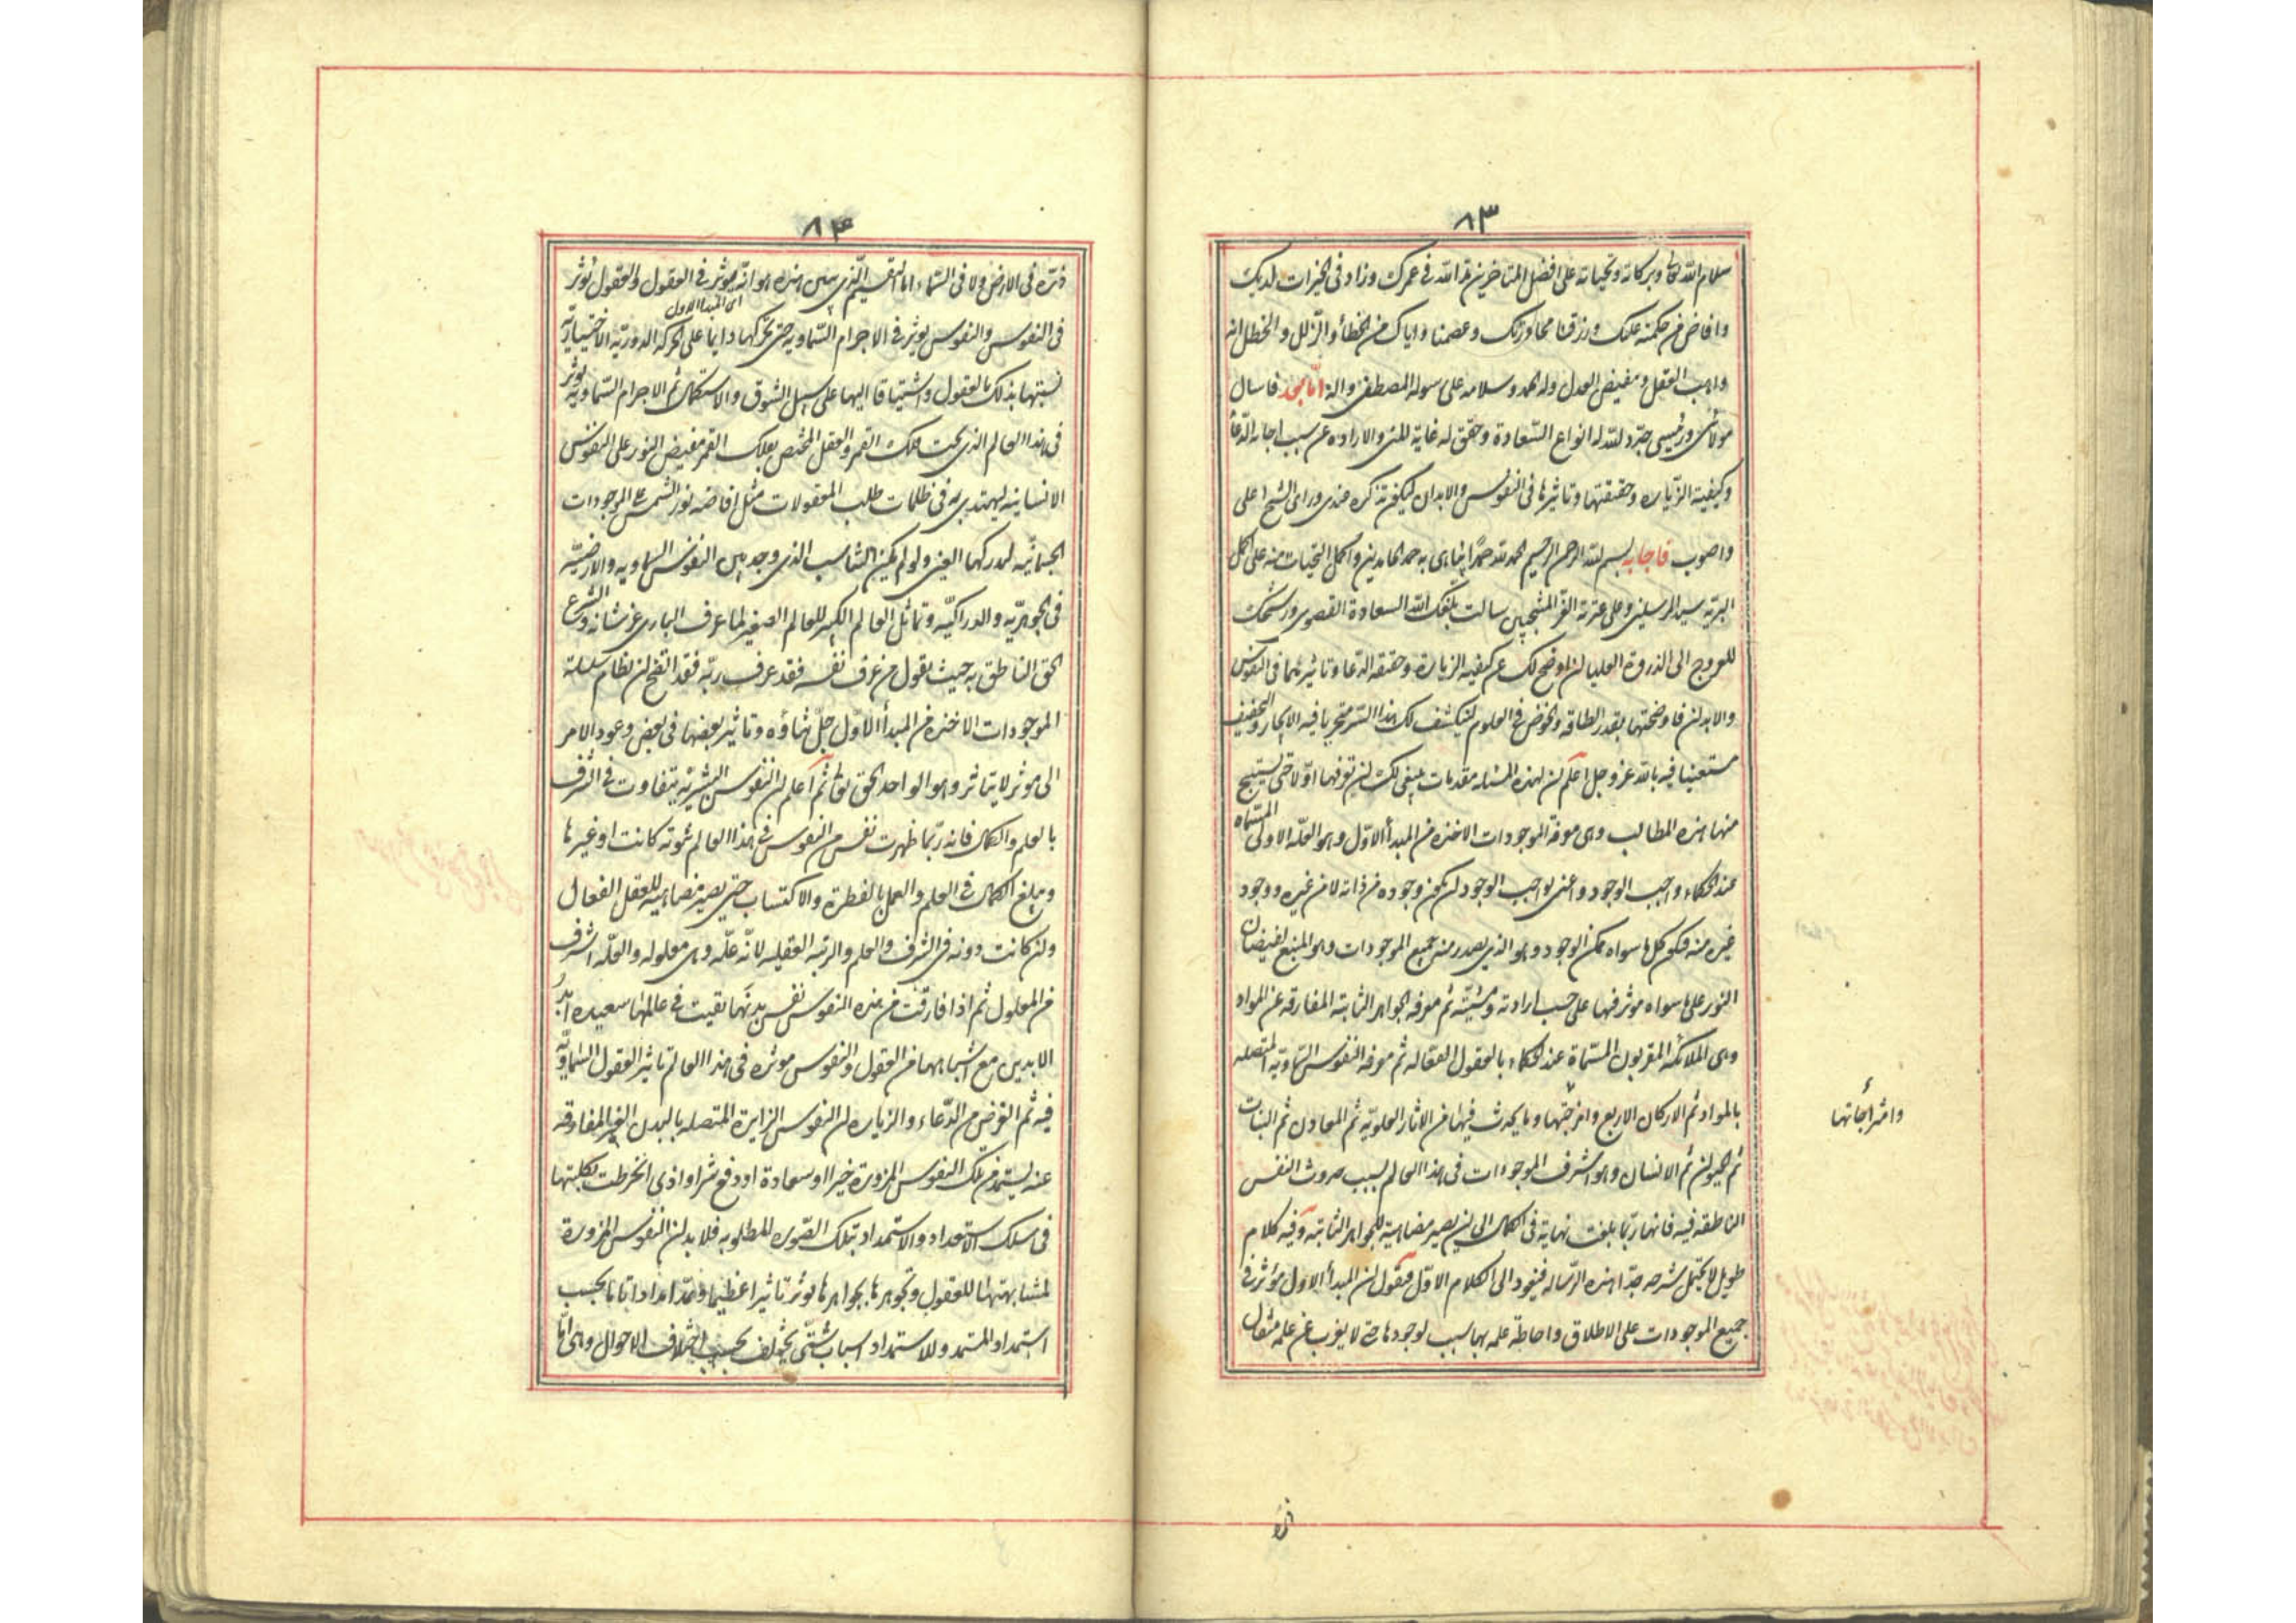 ٨٣
سلام الله تعالی وبرکاته وتحیاته علی افضل المتاخرین مد الله فی عمرک وزاد فی الخیرات لدیک
وافاض من حکمته علیک ورزقنا محاورتک وعصمنا وایاک من الخطأ والزلل والخطل انه
واهب العقل ومفیض العدل وله الحمد وسلامه علی رسوله المصطفی واله اما بعد فاسال
مولائی ورئیسی جدد الله له انواع السعادة وحقق له غایة المنی والارادة عن سبب اجابة الدعأ
وکیفیة الزیارة وحقیقتها وتاثیرها فی النفوس والابدان لیکون تذکره عندی ورای الشیخ اعلی
واصوب فاجابه بسم الله الرحمن الرحیم الحمد لله حمدا یباهی به حمد الحامدین واکمل التحیات منه علی اکمل
البریه سید المرسلین وعلی عترته الغر المنتجبین سالت بلغک الله السعادة القصوی ورشحک
للعروج الی الذروة العلیا ان اوضح لک عن کیفیه الزیارة وحقیقه الدعا وتاثیرهما فی النفوس
والابدان فاوضحتها بقدر الطاقه والخوض فی العلوم لینکشف لک هذا السر متحریا فیه الایجاز والتخفیف
مستعینا فیه بالله عز وجل اعلم ان لهذه المسئله مقدمات ینبغی لک ان تعرفها اولا حتی تستنتج
منها هذه المطالب وهی معرفة الموجودات الاخذه من المبدأ الاول وهو العلة الاولی المسماه
عند الحکماء واجب الوجود واعنی بواجب الوجود ان یکون وجوده من ذاته لا من غیره ووجود
غیره منه فیکون کل ما سواه ممکن الوجود وهو الذی یصدر منه جمیع الموجودات وهو المنبع لفیضان
النور علی ما سواه موثر فیها علی حسب ارادته ومشیته ثم معرفه الجواهر الثابته المفارقه عن المواد
وهی الملائکه المقربون المسماة عند الحکماء بالعقول الفعاله ثم معرفه النفوس السماویه المتصله
بالمواد ثم الارکان الاربع وامزجتها وما یحدث فیها من الاثار العلویه ثم المعادن ثم النبات
وامتزاجاتها
ثم الحیوان ثم الانسان وهو اشرف الموجودات فی هذا العالم بسبب حدوث النفس
الناطقه فیه فانها ربما بلغت نهایة فی الکمال الی ان یصیر مضاهیة للجواهر الثابته وفیه کلام
طویل لا یحتمل شرحه حد هذه الرساله فنعود الی الکلام الاول فنقول ان المبدأ الاول مؤثر فی
جمیع الموجودات علی الاطلاق واحاطة علمه بها سبب لوجودها حتی لا یعزب عن علمه مثقال
ذره
٨٤
ذره فی الارض ولا فی السماء اما القسم الذی بین هذه هو انه یوثر فی العقول والعقول یؤثر
ای المبدا الاول
فی النفوس والنفوس یوثر فی الاجرام السماویه حتی تحرکها دایما علی الحرکه الدوریه الاختیاریه
تشبها بذلک بالعقول واشتیاقا الیها علی سبیل الشوق والاستکمال ثم الاجرام السماویه یوثر
فی هذا العالم الذی تحت فلک القمر والعقل المختص بفلک القمر مفیض النور علی النفوس
الانسانیه لیهتدی به فی ظلمات طلب المعقولات مثل افاضه نور الشمس علی الموجودات
الجسمانیه لیدرکها العین ولو لم یکن التناسب الذی وجد بین النفوس السماویه والارضیة
فی الجوهریه والدراکیه وتماثل العالم الکبیر للعالم الصغیر لما عرف الباری عز شانه والشرع
الحق الناطق به حیث یقول من عرف نفسه فقد عرف ربه فقد اتضح ان نظام سلسلة
الموجودات الاخذه من المبدأ الاول جل ثناؤه وتاثیر بعضها فی بعض وعود الامر
الی موثر لا یتاثر وهو الواحد الحق تعالی ثم اعلم ان النفوس البشریه یتفاوت فی الشرف
بالعلم والکمال فانه ربما ظهرت نفس من النفوس فی هذا العالم نبویه کانت او غیرها
ویبلغ الکمال فی العلم والعمل بالفطرة والاکتساب حتی یصیر مضاهیه للعقل الفعال
وان کانت دونه فی الشرف والعلم والرتبه العقلیه لانه علة وهی معلوله والعلة اشرف
من المعلول ثم اذا فارقت من هذه النفوس نفس بدنها بقیت فی عالمها سعیده ابد
الابدین مع اشباهها من العقول والنفوس موثره فی هذا العالم تاثیر العقول السماویه
فیه ثم الغرض من الدعاء والزیاره ان النفوس الزایرة المتصله بالبدن الغیر المفارقه
عنه یستمد من تلک النفوس المزوره خیرا او سعادة او دفع شر او اذی انخرطت بکلیتها
فی سلک الاستعداد والاستمداد بتلک الصوره للمطلوبه فلا بد ان النفوس المزورة
لمشابهتها للعقول وتجوهرها بجواهرها یوثر تاثیرا عظیما وتمد امدادا تاما بحسب
استمداد المستمد وللاستمداد اسباب شتی یختلف بحسب اختلاف الاحوال وهی اما